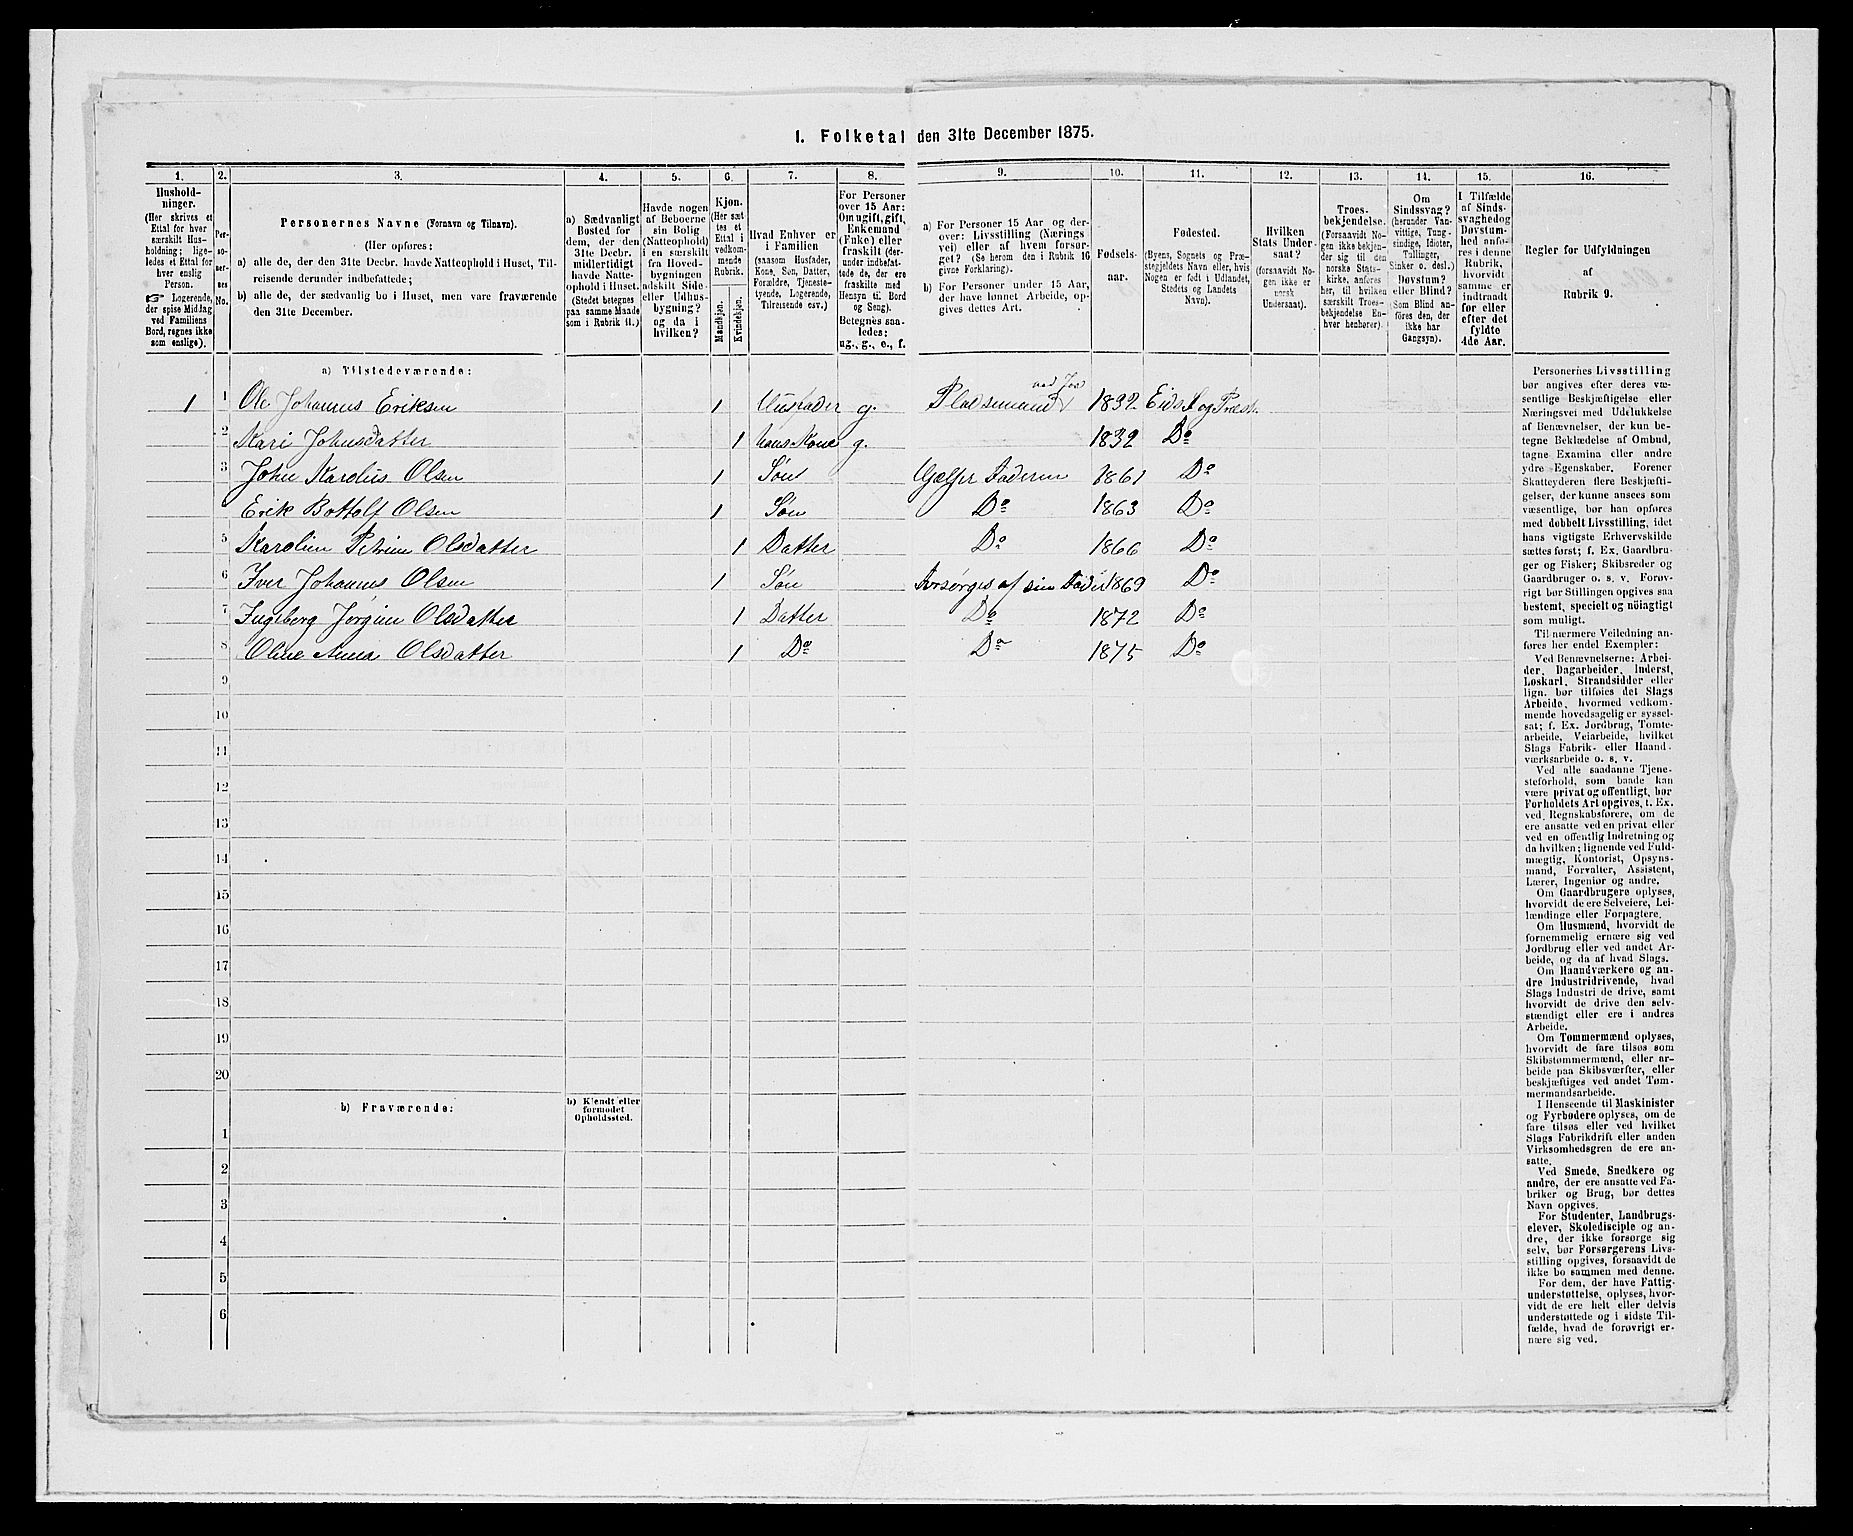 I. Folketal den 31te December 1875.
1. 2. 3. 4. 5. 6. 7. 8. 9. 10. 11. 12. 13. 14. 15. 16.
Hushold-
ninger.
(Her skrives et
Ettal for hver
særskilt Hus-
holdning; lige-
ledes et Ettal for
hver enslig
Person.
☞ Logerende,
der spise Middag
ved Familiens
Bord, regnes ikke
som enslige).
Per-
so-
ner-
nes
No.
Personernes Navne (Fornavn og Tilnavn).
(Her opføres:
a) alle de, der den 31te Decbr. havde Natteophold i Huset, Til-
reisende derunder indbefattede;
b) alle de, der sædvanlig bo i Huset, men vare fraværende
den 31te December.
a) Sædvanligt
Bosted for
dem, der den
31te Decbr.
midlertidigt
havde Natte-
ophold i Huset.
(Stedet betegnes
paa samme Maade
som i Rubrik 11.)
Havde nogen
af Beboerne
sin Bolig
(Natteophold)
i en særskilt
fra Hoved-
bygningen
adskilt Side-
eller Udhus-
bygning?
og da i
hvilken?
Kjøn.
(Her sæt-
tes et
Ettal i
vedkom-
mende
Rubrik.
Mandkjøn.
Kvindekjøn.
Hvad Enhver er
i Familien
(saasom Husfader,
Kone, Søn, Datter,
Forældre, Tjeneste-
tyende, Logerende,
Tilreisende osv.)
For Personer
over 15 Aar:
Om ugift, gift,
Enkemand
(Enke) eller
fraskilt (der-
under indbefat-
tede de, der ere
fraskilte med
Hensyn til Bord
og Seng).
Betegnes saa-
ledes:
ug., g., e., f.
a) For Personer 15 Aar og der-
over: Livsstilling (Nærings
vei) eller af hvem forsør-
get? (Se herom den i Rubrik 16
givne Forklaring).
b) For Personer under 15 Aar,
der have lønnet Arbeide, op-
gives dettes Art.
Fødsels-
aar.
Fødested.
(Byens, Sognets og Præ-
stegjeldets Navn eller, hvis
Nogen er født i Udlandet,
Stedets og Landets
Navn).
Hvilken
Stats Under-
saat?
(forsaavidt No-
gen ikke er
norsk
Undersaat).
Troes-
bekjendelse.
(Forsaavidt No-
gen ikke bekjen-
der sig til den
norske Stats-
kirke, anføres
her, til hvilken
særskilt Troes-
bekjendelse En-
hver henhører).
Om
Sindssvag?
(herunder Van-
vittige, Tung-
sindige, Idioter,
Tullinger,
Sinker o. desl.)
Døvstum?
eller Blind?
(Som Blind an-
föres den, der
ikke har
Gangsyn).
I Tilfælde
af Sinds-
svaghed og
Døvstum-
hed anfø-
res i denne
Rubrik,
hvorvidt
samme er
indtraadt
før eller
efter det
fyldte
4de Aar.
Regler for Udfyldningen
af
Rubrik 9.
a) Tilstedeværende:
1 1 Ole Johannes Eriksen 1 Husfader g. Pladsemand ved Jor 1832 Eids S og Præst.
2 Kari Johnsdatter 1 hans Kone g. 1832 Do
3 John Karolius Olsen 1 Søn Hjælper Faderen 1861 Do
Erik Bottolf Olsen 1 Søn Do 1863 Do
5 Karolin Petrine Olsdatter 1 Datter Do 1866 Do
6 Iver Johannes Olsen 1 Søn Forsørges af sin Fader 1869 Do
7 Ingeborg Jørgine Olsdatter 1 Datter Do 1872 Do
8 Oline Anna Olsdatter 1 Do Do 1875 Do
9
10
11
12
13
14
15
16
17
18
19
20
b) Fraværende:
b) Kjendt eller
formodet
Opholdssted.
1
2
3
4
5
6
Personernes Livsstilling
bør angives efter deres væ-
sentlige Beskjæftigelse eller
Næringsvei med Udelukkelse
af Benævnelser, der kun be-
tegne Beklædelse af Ombud,
tagne Examina eller andre
ydre Egenskaber. Forener
Skatteyderen flere Beskjæfti-
gelser, der kunne ansees som
væsentlige, bør han opføres
med dobbelt Livsstilling, idet
hans vigtigste Erhvervskilde
sættes først; f. Ex. Gaardbru-
ger og Fisker; Skibsreder og
Gaardbruger o. s. v. Forøv-
rigt bør Stillingen opgives saa
bestemt, specielt og nöiagtigt
som muligt.
Til nærmere Veiledning an-
føres her endel Exempler:
Ved Benævnelserne: Arbei-
der, Dagarbeider, Inderst,
Løskarl, Strandsidder eller
lign. bør tilføies det Slags
Arbeide, hvormed vedkom-
mende hovedsagelig er syssel-
sat; f. Ex. Jordbrug, Tomte-
arbeide, Veiarbeide, hvilket
Slags Fabrik- eller Haand-
værksarbeide o. s. v.
Ved alle saadanne Tjene-
steforhold, som baade kan
være privat og offentligt, bør
Forholdets Art opgives, t. Ex.
ved Regnskabsførere, om de
ere ansatte ved en privat eller
ved en offentlig Indretning og
da hvilken; lignende ved Fuld-
mægtig, Kontorist, Opsyns-
mand, Forvalter, Assistent,
Lærer, Ingeniør og andre.
Om Gaardbrugere oplyses,
hvorvidt de ere Selveiere, Lei-
lændinge eller Forpagtere.
Om Husmænd, hvorvidt de
fornemmelig ernære sig ved
Jordbrug eller ved andet Ar-
beide, og da af hvad Slags.
Om Haandværkere og an-
dre Industridrivende, hvad
Slags Industri de drive, samt
hvorvidt de drive den selv-
stændigt eller ere i andres
Arbeide.
Om Tømmermænd oplyses,
hvorvidt de fare tilsøs som
Skibstømmermænd, eller ar-
beide paa Skibsværfter, eller
beskjæftiges ved andet Tøm-
mermandsarbeide.
I Henseende til Maskinister
og Fyrbødere oplyses, om de
fare tilsøs eller ved hvilket
Slags Fabrikdrift eller anden
Virksomhedsgren de ere an-
satte.
Ved Smede, Snedkere og
andre, der ere ansatte ved Fa-
briker og Brug, bør dettes
Navn opgives.
For Studenter, Landbrugs-
elever, Skoledisciple og an-
dre, der ikke forsørge sig
selv, bør Forsørgerens Livs-
stilling opgives, forsaavidt de
ikke bo sammen med denne.
For dem, der have Fattig-
understøttelse, oplyses, hvor-
vidt de ere helt eller delvis
understøttede og i sidste Til-
fælde, hvad de forøvrigt er-
nære sig ved.